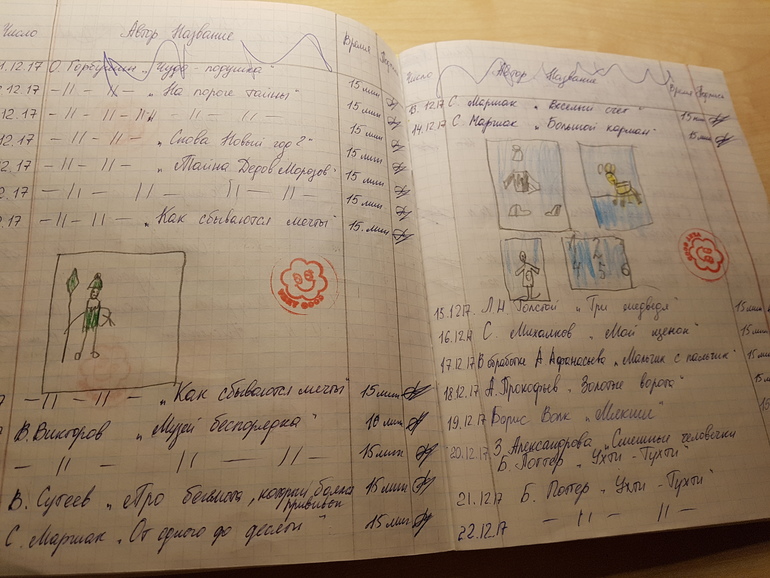 Число Автор Название Время Подпись
1.12.17 О. Горбушин „Чудо-подушка" 15 мин
12.17 — 11 — „На пороге тайны" 15 мин
12.17 — 11 — 11 — 11 — 15 мин
12.17 — 11 — 11 — „Снова Новый год?" 15 мин
12.17 — 11 — 11 — „Тайна Дедов Морозов" 15 мин
12.17 — 11 — 11 — 11 — 11 — 15 мин
17 — 11 — 11 — „Как сбываются мечты" 15 мин
VERY GOOD
— 11 — 11 — „Как сбываются мечты" 15 мин
В. Викторов „Музей беспорядка" 10 мин
— 11 — 11 — 11 — 15 мин
В. Сутеев „Про бегемота, который боялся прививок 15 мин
С. Маршак „От одного до десяти" 15 мин
Число Автор Название Время Подпись
13.12.17 С. Маршак „Веселый счет" 15 мин
14.12.17 С. Маршак „Большой карман" 15 мин
1 2 3
4 5 6
15.12.17 Л.Н. Толстой „Три медведя" 15 мин
16.12.17 С. Михалков „Мой щенок" 15 мин
17.12.17 В обработке А. Афанасьева „Мальчик с пальчик" 15 м
18.12.17 А. Прокофьев „Золотые ворота"
19.12.17 Борис
20.12.17 З. Александрова „Смешные человечки
Б. Поттер „Ухти-Тухти"
21.12.17 Б. Поттер „Ухти-Тухти"
22.12.17 — 11 — 11 —